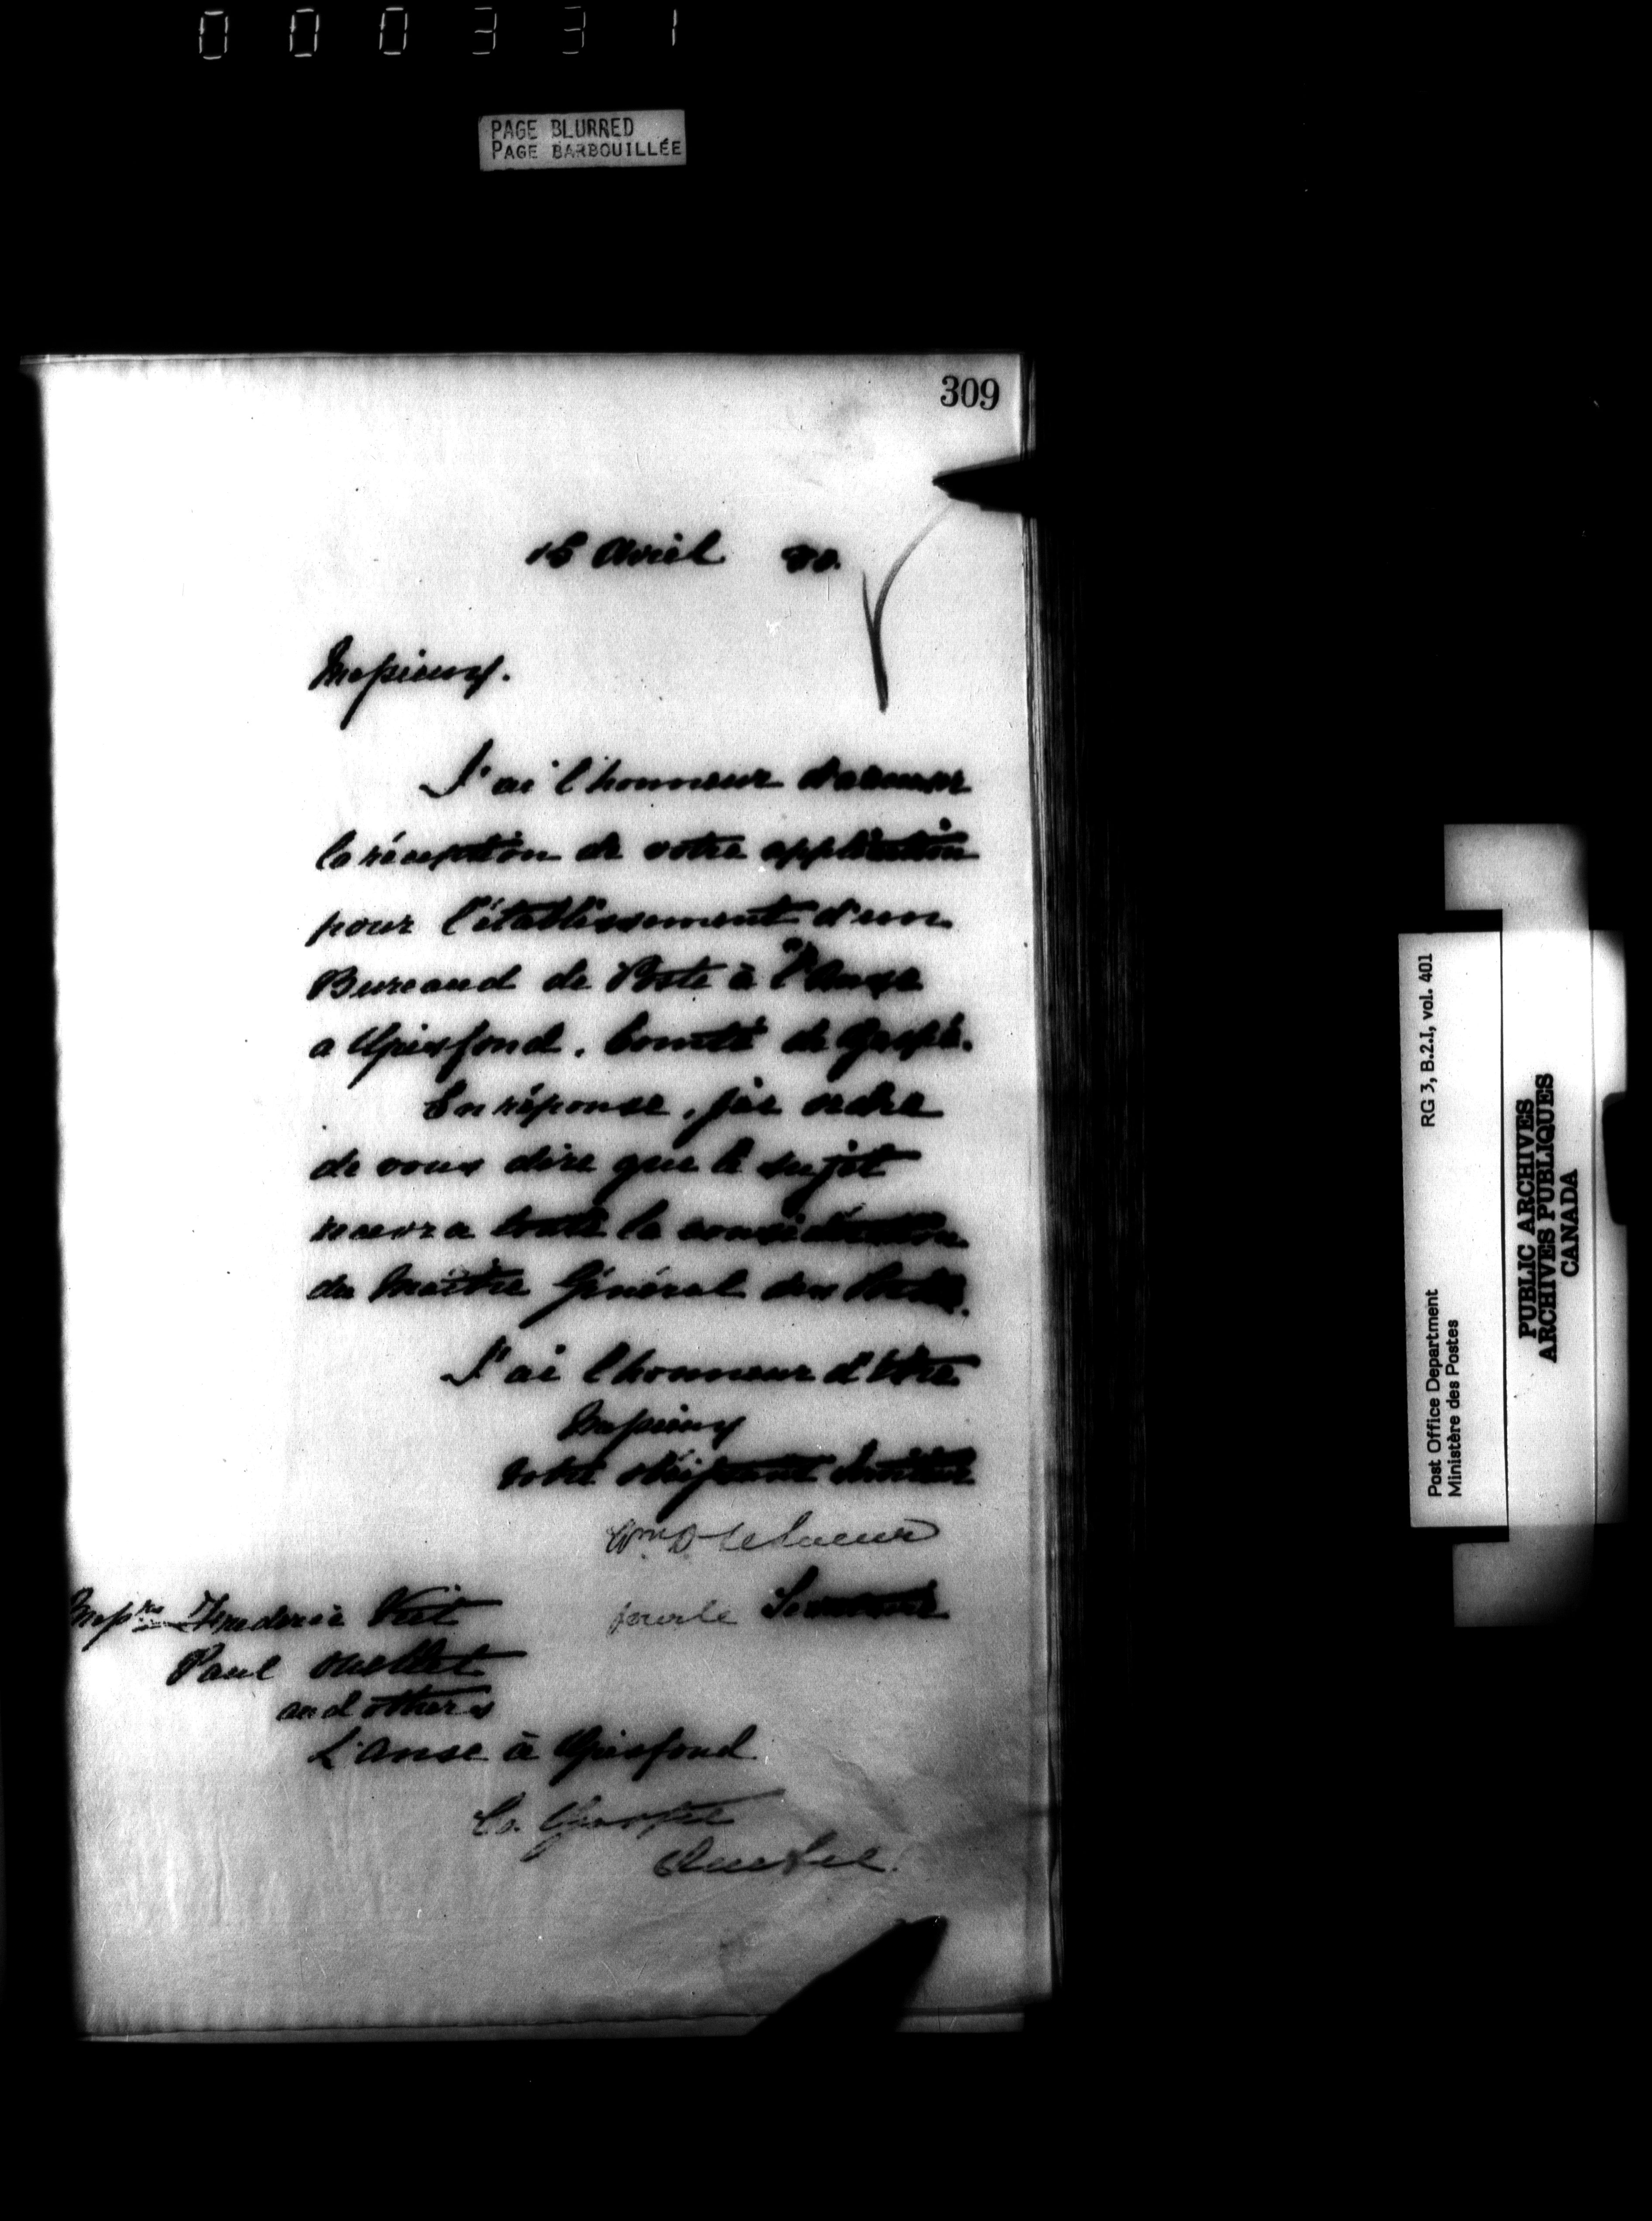 000331
PAGE BLURRED
PAGE BARBOUILLÉE
309
Avril
Messieurs.
J'ai l'honneur d'accuser
la réception de votre application
pour l'établissement d'un
Bureaud de Poste à l'Anse
a Grisfond. Comté de Gaspé.
En réponse, j'ai ordre
de vous dire que le sujet
recevra toute la considération
du Maître Général des Postes.
J'ai l'honneur d'être
Messieurs
Votre obéissant Serviteur
Wm D LeSueur
pour le Secretaire
Messrs Frederic Viet
Paul Ouellet
and others
L'Anse à Grisfond
Co. Gaspé
Quebec.
Post Office Department RG 3, B.2.I, vol. 401
Ministère des Postes
PUBLIC ARCHIVES
ARCHIVES PUBLIQUES
CANADA